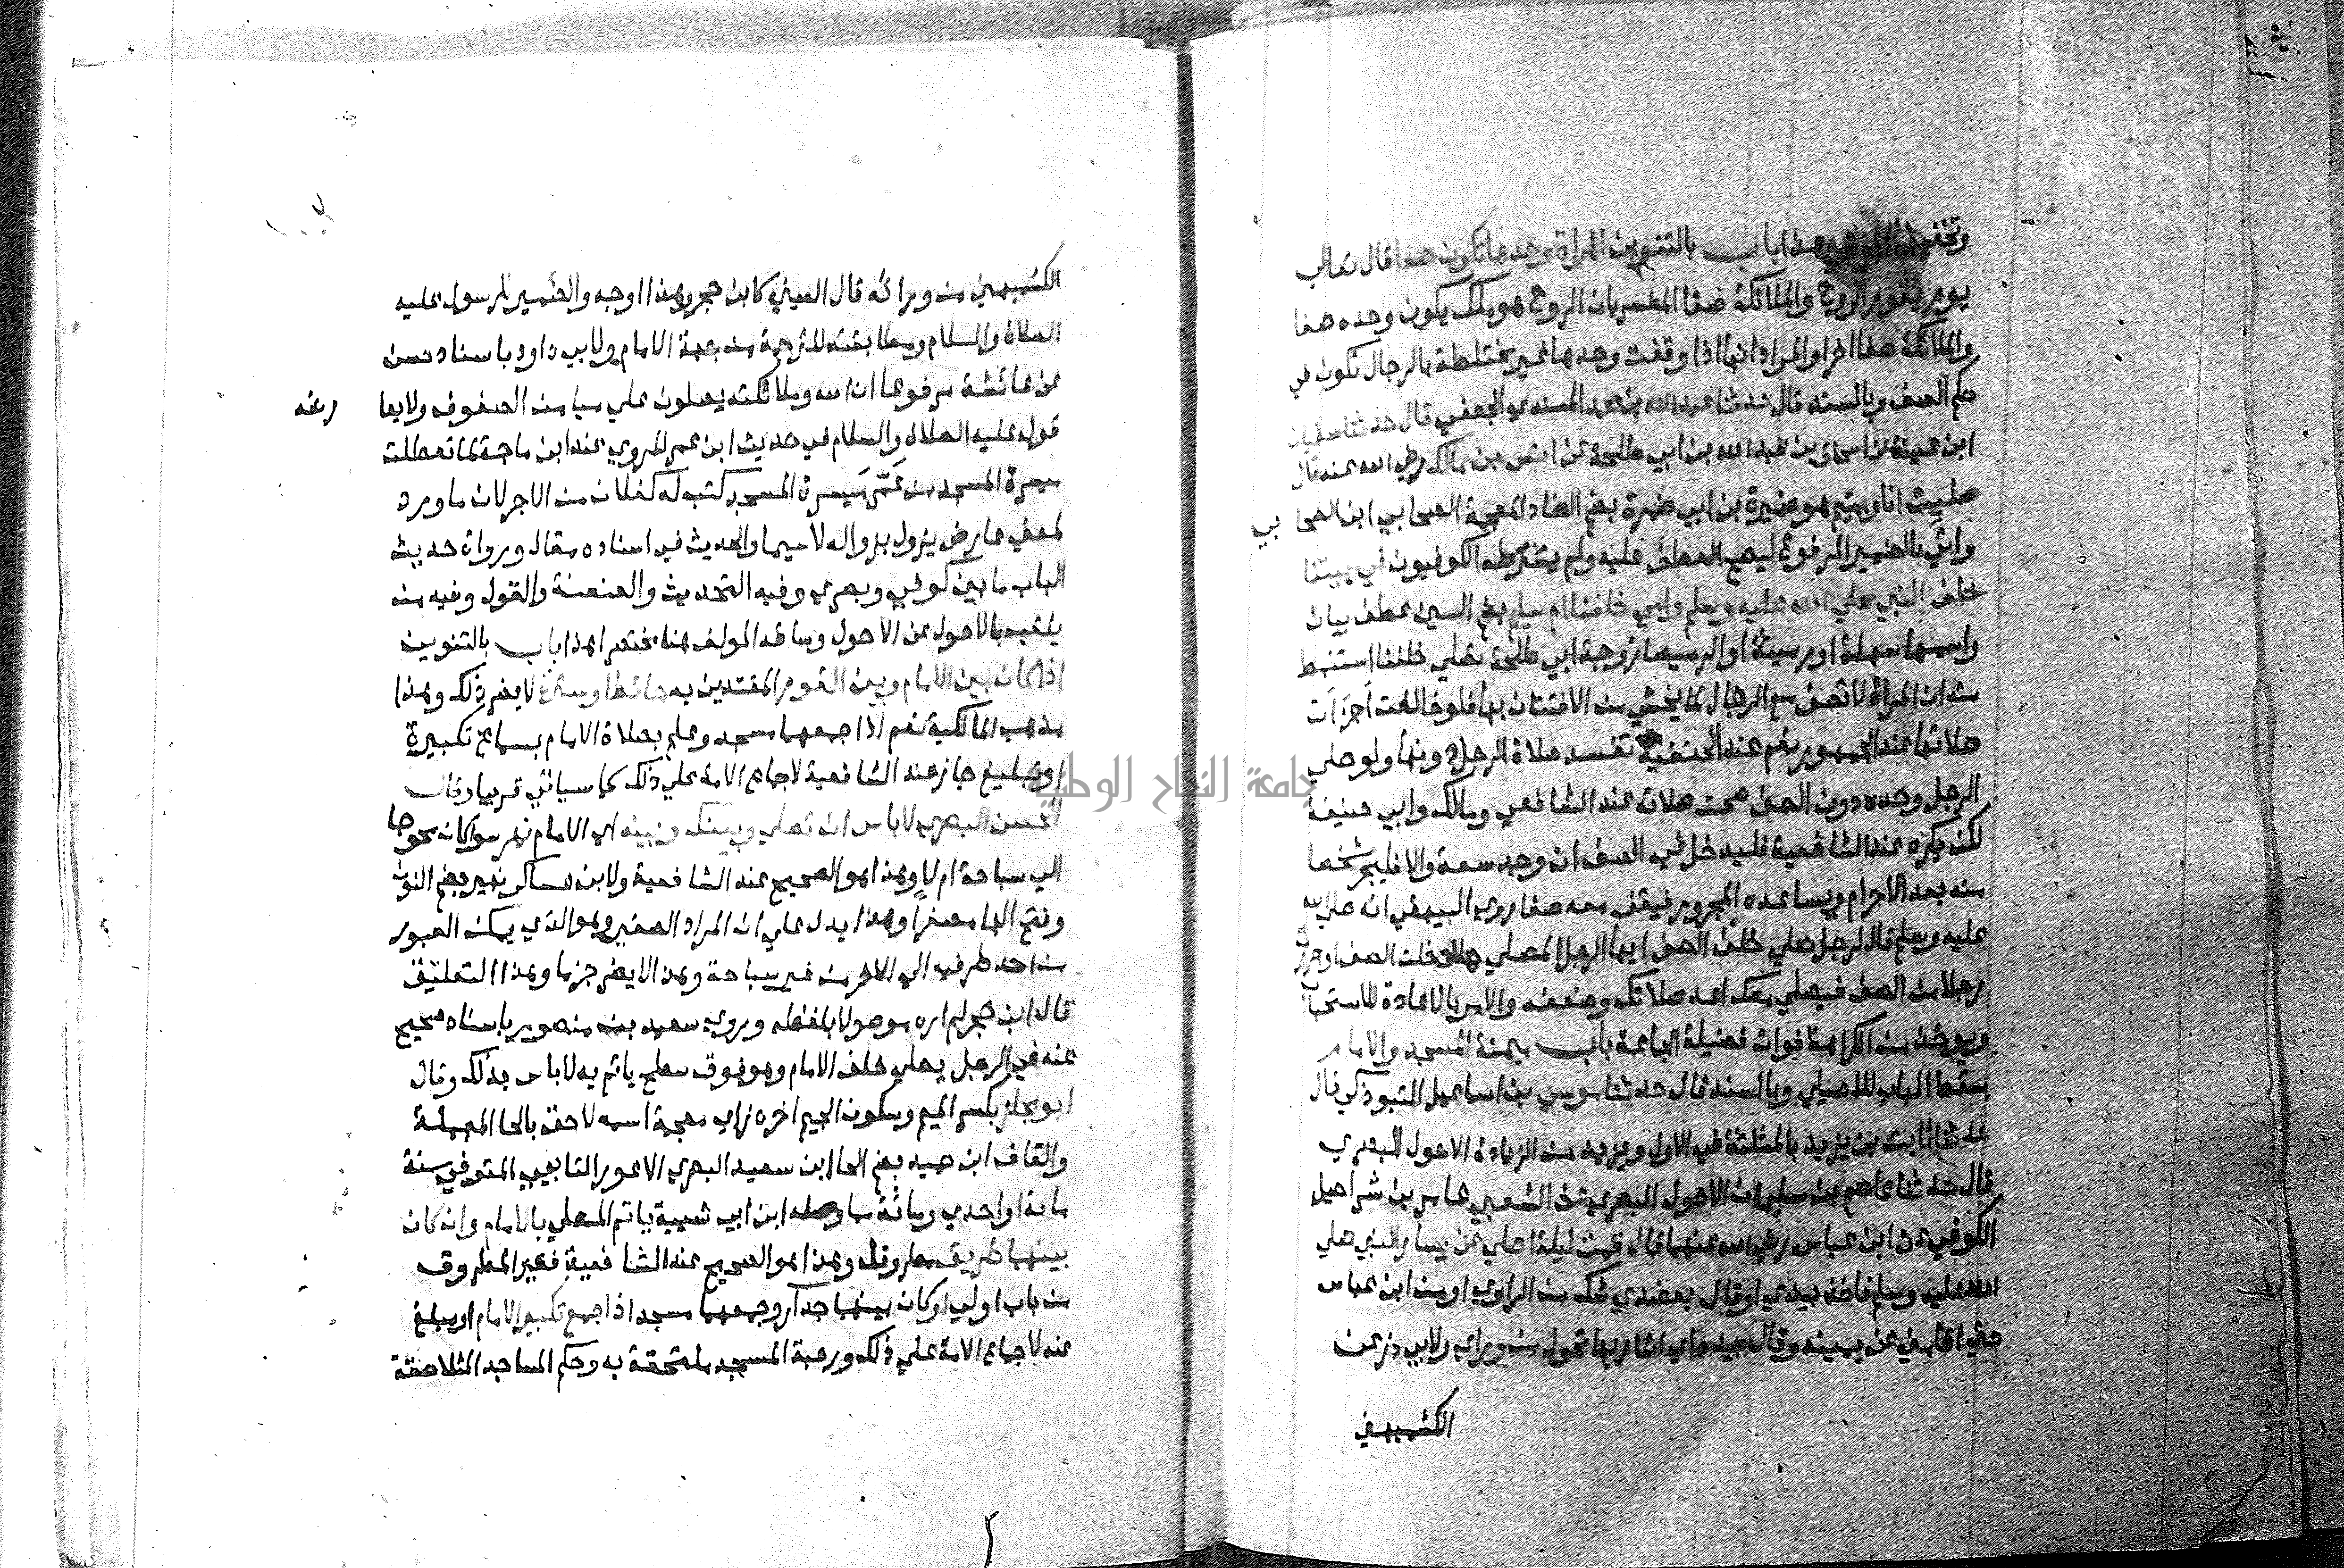 وتخفيف هذا باب بالتنوين المراة وحدها تكون صفا قال تعالى
يوم يقوم الروح والملائكة صفا المفسر بان الروح هو ملك يكون وحده صفا
والملائكة صفا اخر او المراد انها اذا وقفت وحدها غير مختلطة بالرجال تكون في
حكم الصف وبالسند قال حدثنا عبد الله بن محمد المسندي الجعفي قال حدثنا سفيان
ابن عيينة عن اسحاق بن عبد الله بن ابي طلحة عن انس بن مالك رضي الله عنه قال
صليت انا ويتيم هو ضميرة بن ابي ضميرة بضم الضاد المعجمة الصحابي ابن الصحا بي
واتي بالضمير المرفوع ليصح العطف عليه ولم يشترطه الكوفيون في بيتنا
خلف النبي صلي الله عليه وسلم وامي خلفنا ام سليم بضم السين عطف بيان
واسمها سهلة او رميثة او الرميصا زوجة ابي طلحة تصلي خلفنا استنبط
منه ان المراة لا تصف مع الرجال لما يخشي من الافتتان بها فلو خالفت اجزات
صلاتها عند الجمهور نعم عند الحنفية تفسد صلاة الرجل دونها ولو صلي
الرجل وحده دون الصف صحت صلاته عند الشافعي ومالك وابي حنيفة
لكن يكره عند الشافعية فليدخل في الصف ان وجد سعة والا فليجر شخصا
منه بعد الاحرام ويساعده المجرور فيقف معه صفا روي البيهقي انه صلي الله
عليه وسلم قال لرجل صلي خلف الصف ايها الرجل المصلي هلا دخلت الصف او جررت
رجلا من الصف فيصلي معك اعد صلاتك وضعفه والامر بالاعادة للاستحباب
ويوخذ من الكراهة فوات فضيلة الجماعة باب ميمنة المسجد والامام
سقط الباب للاصيلي وبالسند قال حدثنا موسي بن اسماعيل التبوذكي قال
حدثنا ثابت بن يزيد بالمثلثة في الاول ويزيد من الزيادة الاحول البصري
قال حدثنا عاصم بن سليمان الاحول البصري عن الشعبي عامر بن شراحيل
الكوفي عن ابن عباس رضي الله عنهما قال قمت ليلة اصلي عن يسار النبي صلي
الله عليه وسلم فاخذ بيدي او قال بعضدي شك من الراوي او من ابن عباس
حتي اقامني عن يمينه وقال بيده اي اشار بها تحول من وراي ولابي ذر عن
الكشميهني
الكشميهني من ورائه قال العيني كابن حجر وهذا اوجه والضمير للرسول عليه
الصلاة والسلام ومطابقته للترجمة من جهة الامام ولابي داود باسناد حسن
عن عائشة مرفوعا ان الله وملائكته يصلون علي ميامن الصفوف ولا يعا رضه
قوله عليه الصلاة والسلام في حديث ابن عمر المروي عند ابن ماجة لما تعطلت
ميسرة المسجد من عمر ميسرة المسجد كتب له كفلان من الاجر لان ما ورد
لمعني عارض يزول بزواله لا سيما والحديث في اسناده مقال ورواة حديث
الباب ما بين كوفي وبصري وفيه التحديث والعنعنة والقول وفيه من
يلقب بالاحول عن الاحول وساقه المولف هنا مختصرا هذا باب بالتنوين
اذا كان بين الامام وبين القوم المقتدين به حائط او سترة لا يضر ذلك وهذا
مذهب المالكية نعم اذا جمعهما مسجد وعلم بصلاة الامام بسماع تكبيرة
او تبليغ جاز عند الشافعية لاجماع الامة علي ذلك كما سياتي قريبا وقال
الحسن البصري لا باس ان تصلي وبينك وبينه اي الامام نهر سوا كان محوجا
الي سباحة ام لا وهذا هو الصحيح عند الشافعية ولابن عساكر نهير بضم النون
وفتح الها مصغرا وهذا يدل علي ان المراد الصغير وهو الذي يمكن العبور
من احد طرفيه الي الاخر من غير سباحة وهذا لا يضر جزما وهذا التعليق
قال ابن حجر لم اره موصولا بلفظه وروي سعيد بن منصور باسناد صحيح
عنه في الرجل يصلي خلف الامام وهو فوق سطح ياتم به لا باس بذلك وقال
ابو مجلز بكسر الميم وسكون الجيم اخره زاي معجمة اسمه لاحق بالحا المهملة
والقاف ابن حميد بضم الحا ابن سعيد البصري الاعور التابعي المتوفي سنة
مائة او احدي ومائة مما وصله ابن ابي شيبة ياتم المصلي بالامام وان كان
بينهما طريق مطروق وهذا هو الصحيح عند الشافعية فغير المطروق
من باب اولي او كان بينهما جدار وجمعهما مسجد اذا سمع تكبير الامام او مبلغ
عنه لاجماع الامة علي ذلك ورحبة المسجد ملتحقة به وحكم المساجد المتلاصقة
جامعة النجاح الوطنية